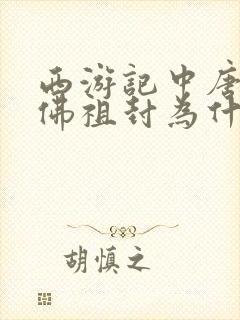 西游記中唐
佛祖封為什
胡慎之